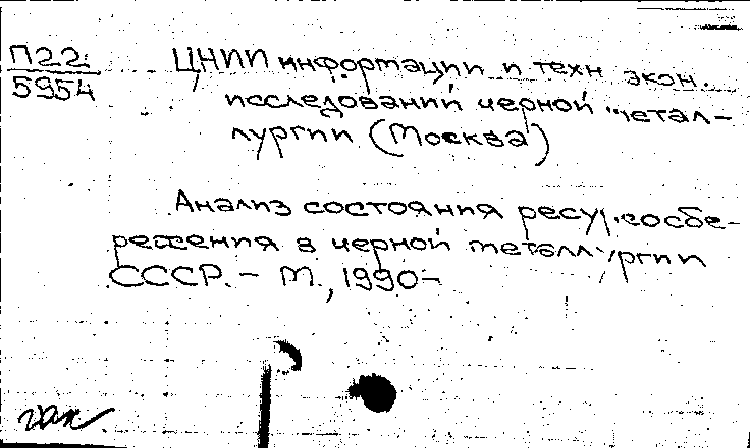 П22
5954
ЦНИИ информации и техн. экон.
исследований черной метал-
лургии (Москва)
Анализ состояния ресурсосбе-
режения в черной металлургии
СССР. - М., 1990-